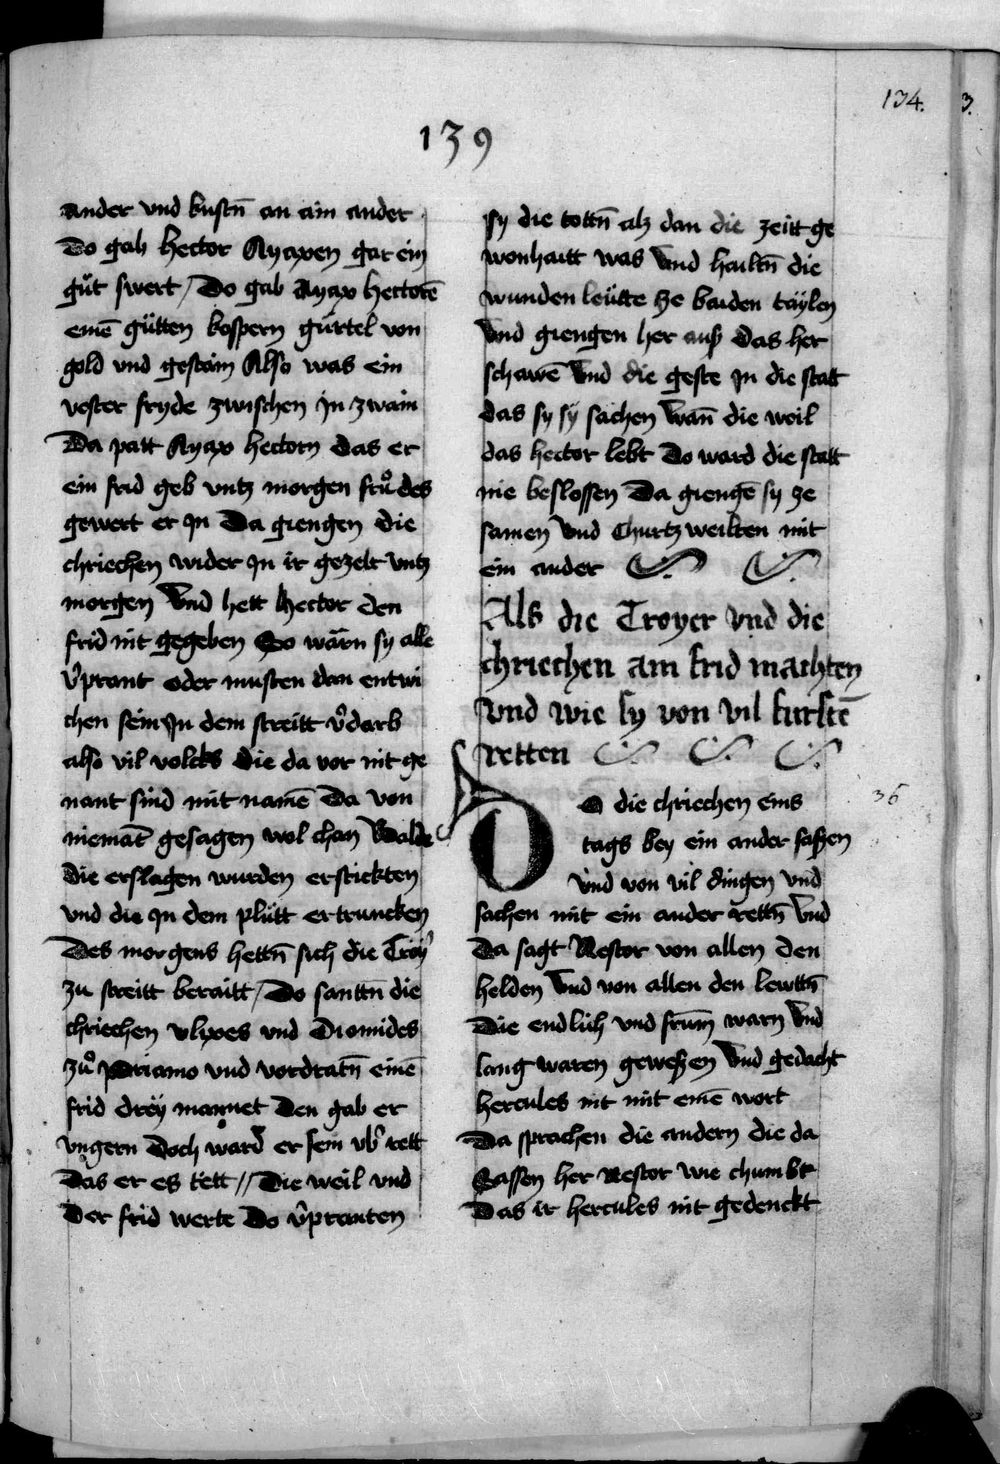 134.
3.
139
ander vnd kustn̄ an ain ander
Do gab hector Ayaxen gar ein
gůt swert / Do gab Ayax hectorē
einē gůtten kospern gürtel von
gold vnd gestain Also was ein
vester fryde zwischen jn zwain
Da patt Ayax hectorn das er
ein frid geb vntz morgen frů des
gewert er jn Da giengen die
chriechen wider jn ir gezelt vntz
morgen Vnd hett hector den
frid nit gegeben So wārn sy alle
v̉prant oder musten dan entwi
chen sein Jn dem streitt v̉darb
also vil volcks die da vor nit ge
nant sind mit namē Da von
niemāt gesagen wol chan Walde
die erslagen wurden erstickten
vnd die jn dem plütt ertruncken
Des morgens hettn̄ sich die Troỷ
zu streitt beraitt / Do santtn̄ die
chriechen vlixes vnd Diomides
zů Priamo vnd vordratn̄ einē
frid dreÿ mannet Den gab er
vngern Doch ward er sein vb̉ rett
Das er es tett // Die weil vnd
Der frid werte Do v̉pranten
sy die tottn̄ alz dan die zeitt ge
wonhaitt was Vnd hailtn̄ die
wunden leütte ze baiden taÿlen
Vnd giengen her auß das her
schawē Vnd die geste jn die statt
das sy sy sachen Wan̄ die weil
das hector lebt Do ward die statt
nie beslossen Da giengē sy ze
samen Vnd Churtzweilten mit
ein ander
Als die Troyer vnd die
chriechen am frid machten
vnd wie sy von vil fursten
retten
36
DO die chriechen eins
tags bey ein ander saßen
vnd von vil dingen vnd
sachen mit ein ander rettn̄ Vnd
Da sagt Nestor von allen den
helden Vnd von allen den lewttn̄
Die endlich vnd frum̄ warn Vnd
lang waren geweßen Vnd gedacht
hercules nit mit einē wort
Da sprachen die andern die da
Sassen her Nestor wie chumbt
Das ir hercules nit gedenckt